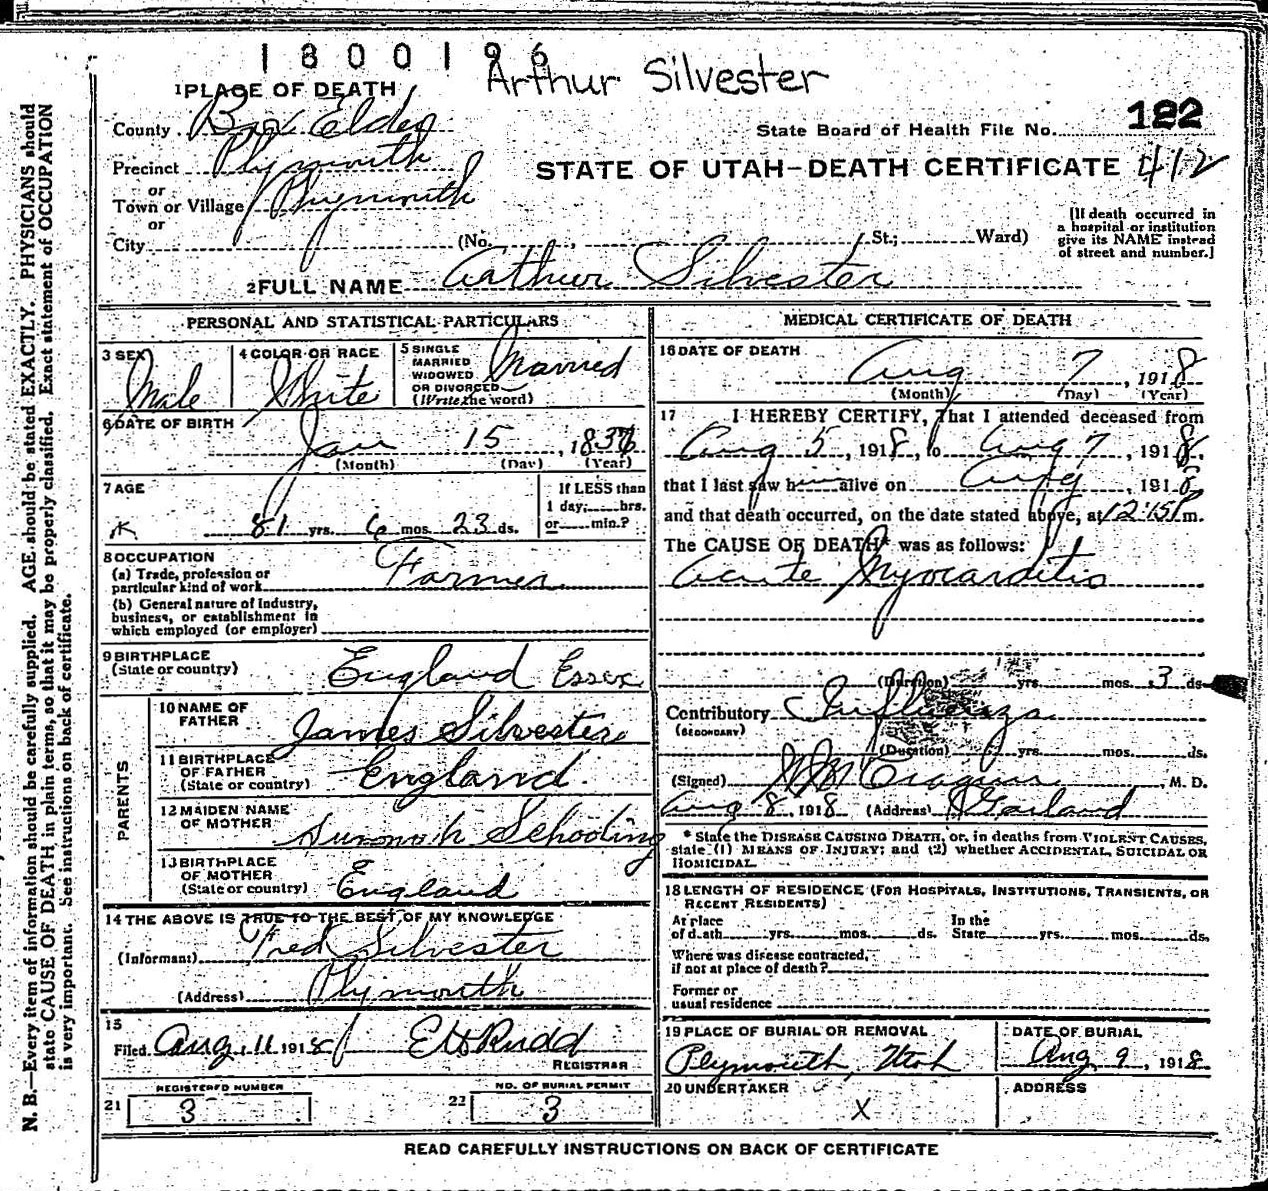 1800196
Arthur Silvester
1 PLACE OF DEATH
County Box Elder
State Board of Health File No. 122
Precinct Plymouth
STATE OF UTAH—DEATH CERTIFICATE 412
or
Town or Village Plymouth
or
City (No. , St.; Ward)
[If death occurred in
a hospital or institution
give its NAME instead
of street and number.]
2 FULL NAME Arthur Silvester
PERSONAL AND STATISTICAL PARTICULARS
3 SEX Male
4 COLOR OR RACE White
5 SINGLE
MARRIED
WIDOWED
OR DIVORCED
(Write the word) Married
6 DATE OF BIRTH
Jan 15, 1837
(Month) (Day) (Year)
7 AGE
81 yrs. 6 mos. 23 ds.
If LESS than
1 day, hrs.
or min.?
8 OCCUPATION
(a) Trade, profession or
particular kind of work Farmer
(b) General nature of industry,
business, or establishment in
which employed (or employer)
9 BIRTHPLACE
(State or country) England Essex
PARENTS
10 NAME OF
FATHER James Silvester
11 BIRTHPLACE
OF FATHER
(State or country) England
12 MAIDEN NAME
OF MOTHER Schooling
13 BIRTHPLACE
OF MOTHER
(State or country) England
14 THE ABOVE IS TRUE TO THE BEST OF MY KNOWLEDGE
(Informant) Fred Silvester
(Address) Plymouth
15
Filed Aug. 11 1918 E H Rudd
REGISTRAR
REGISTERED NUMBER
21 3
NO. OF BURIAL PERMIT
22 3
MEDICAL CERTIFICATE OF DEATH
16 DATE OF DEATH
Aug 7, 1918
(Month) (Day) (Year)
17 I HEREBY CERTIFY, That I attended deceased from
Aug 5, 1918, to Aug 7, 1918,
that I last saw him alive on Aug, 1918
and that death occurred, on the date stated above, at 12:15 P m.
The CAUSE OF DEATH* was as follows:
Acute Myocarditis
(Duration) yrs. mos. 3 ds.
Contributory Influenza
(SECONDARY)
(Duration) yrs. mos. ds.
(Signed) , M. D.
Aug 8, 1918 (Address) Garland
* State the DISEASE CAUSING DEATH, or, in deaths from VIOLENT CAUSES,
state (1) MEANS OF INJURY; and (2) whether ACCIDENTAL, SUICIDAL OR
HOMICIDAL.
18 LENGTH OF RESIDENCE (FOR HOSPITALS, INSTITUTIONS, TRANSIENTS, OR
RECENT RESIDENTS)
At place
of death yrs. mos. ds.
In the
State yrs. mos. ds.
Where was disease contracted,
if not at place of death?
Former or
usual residence
19 PLACE OF BURIAL OR REMOVAL
Plymouth, Utah
DATE OF BURIAL
Aug, 9, 1918
20 UNDERTAKER
X
ADDRESS
READ CAREFULLY INSTRUCTIONS ON BACK OF CERTIFICATE
N. B.—Every item of information should be carefully supplied. AGE should be stated EXACTLY. PHYSICIANS should
state CAUSE OF DEATH in plain terms, so that it may be properly classified. Exact statement of OCCUPATION
is very important. See instructions on back of certificate.